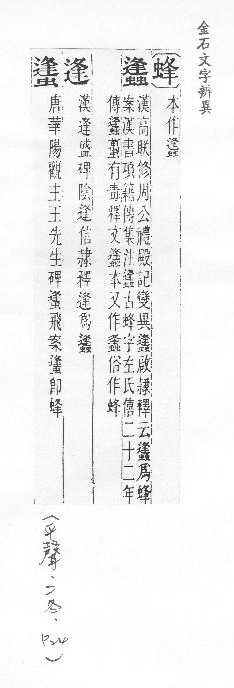 金石文字辨異
蜂 本作蠭
蠭 漢高眹修周公禮殿記變異蠭啟隸釋云蠭爲蜂
案漢書項籍傳集注蠭古蜂字左氏僖二十二年
傳蠭蠆有毒釋文蠭本又作蠭俗作蜂
逢 漢逢盛碑陰逢信隸釋逢爲蠭
䗬 唐華陽觀主王先生碑䗬飛案䗬即蜂
(平聲·二冬·P24)